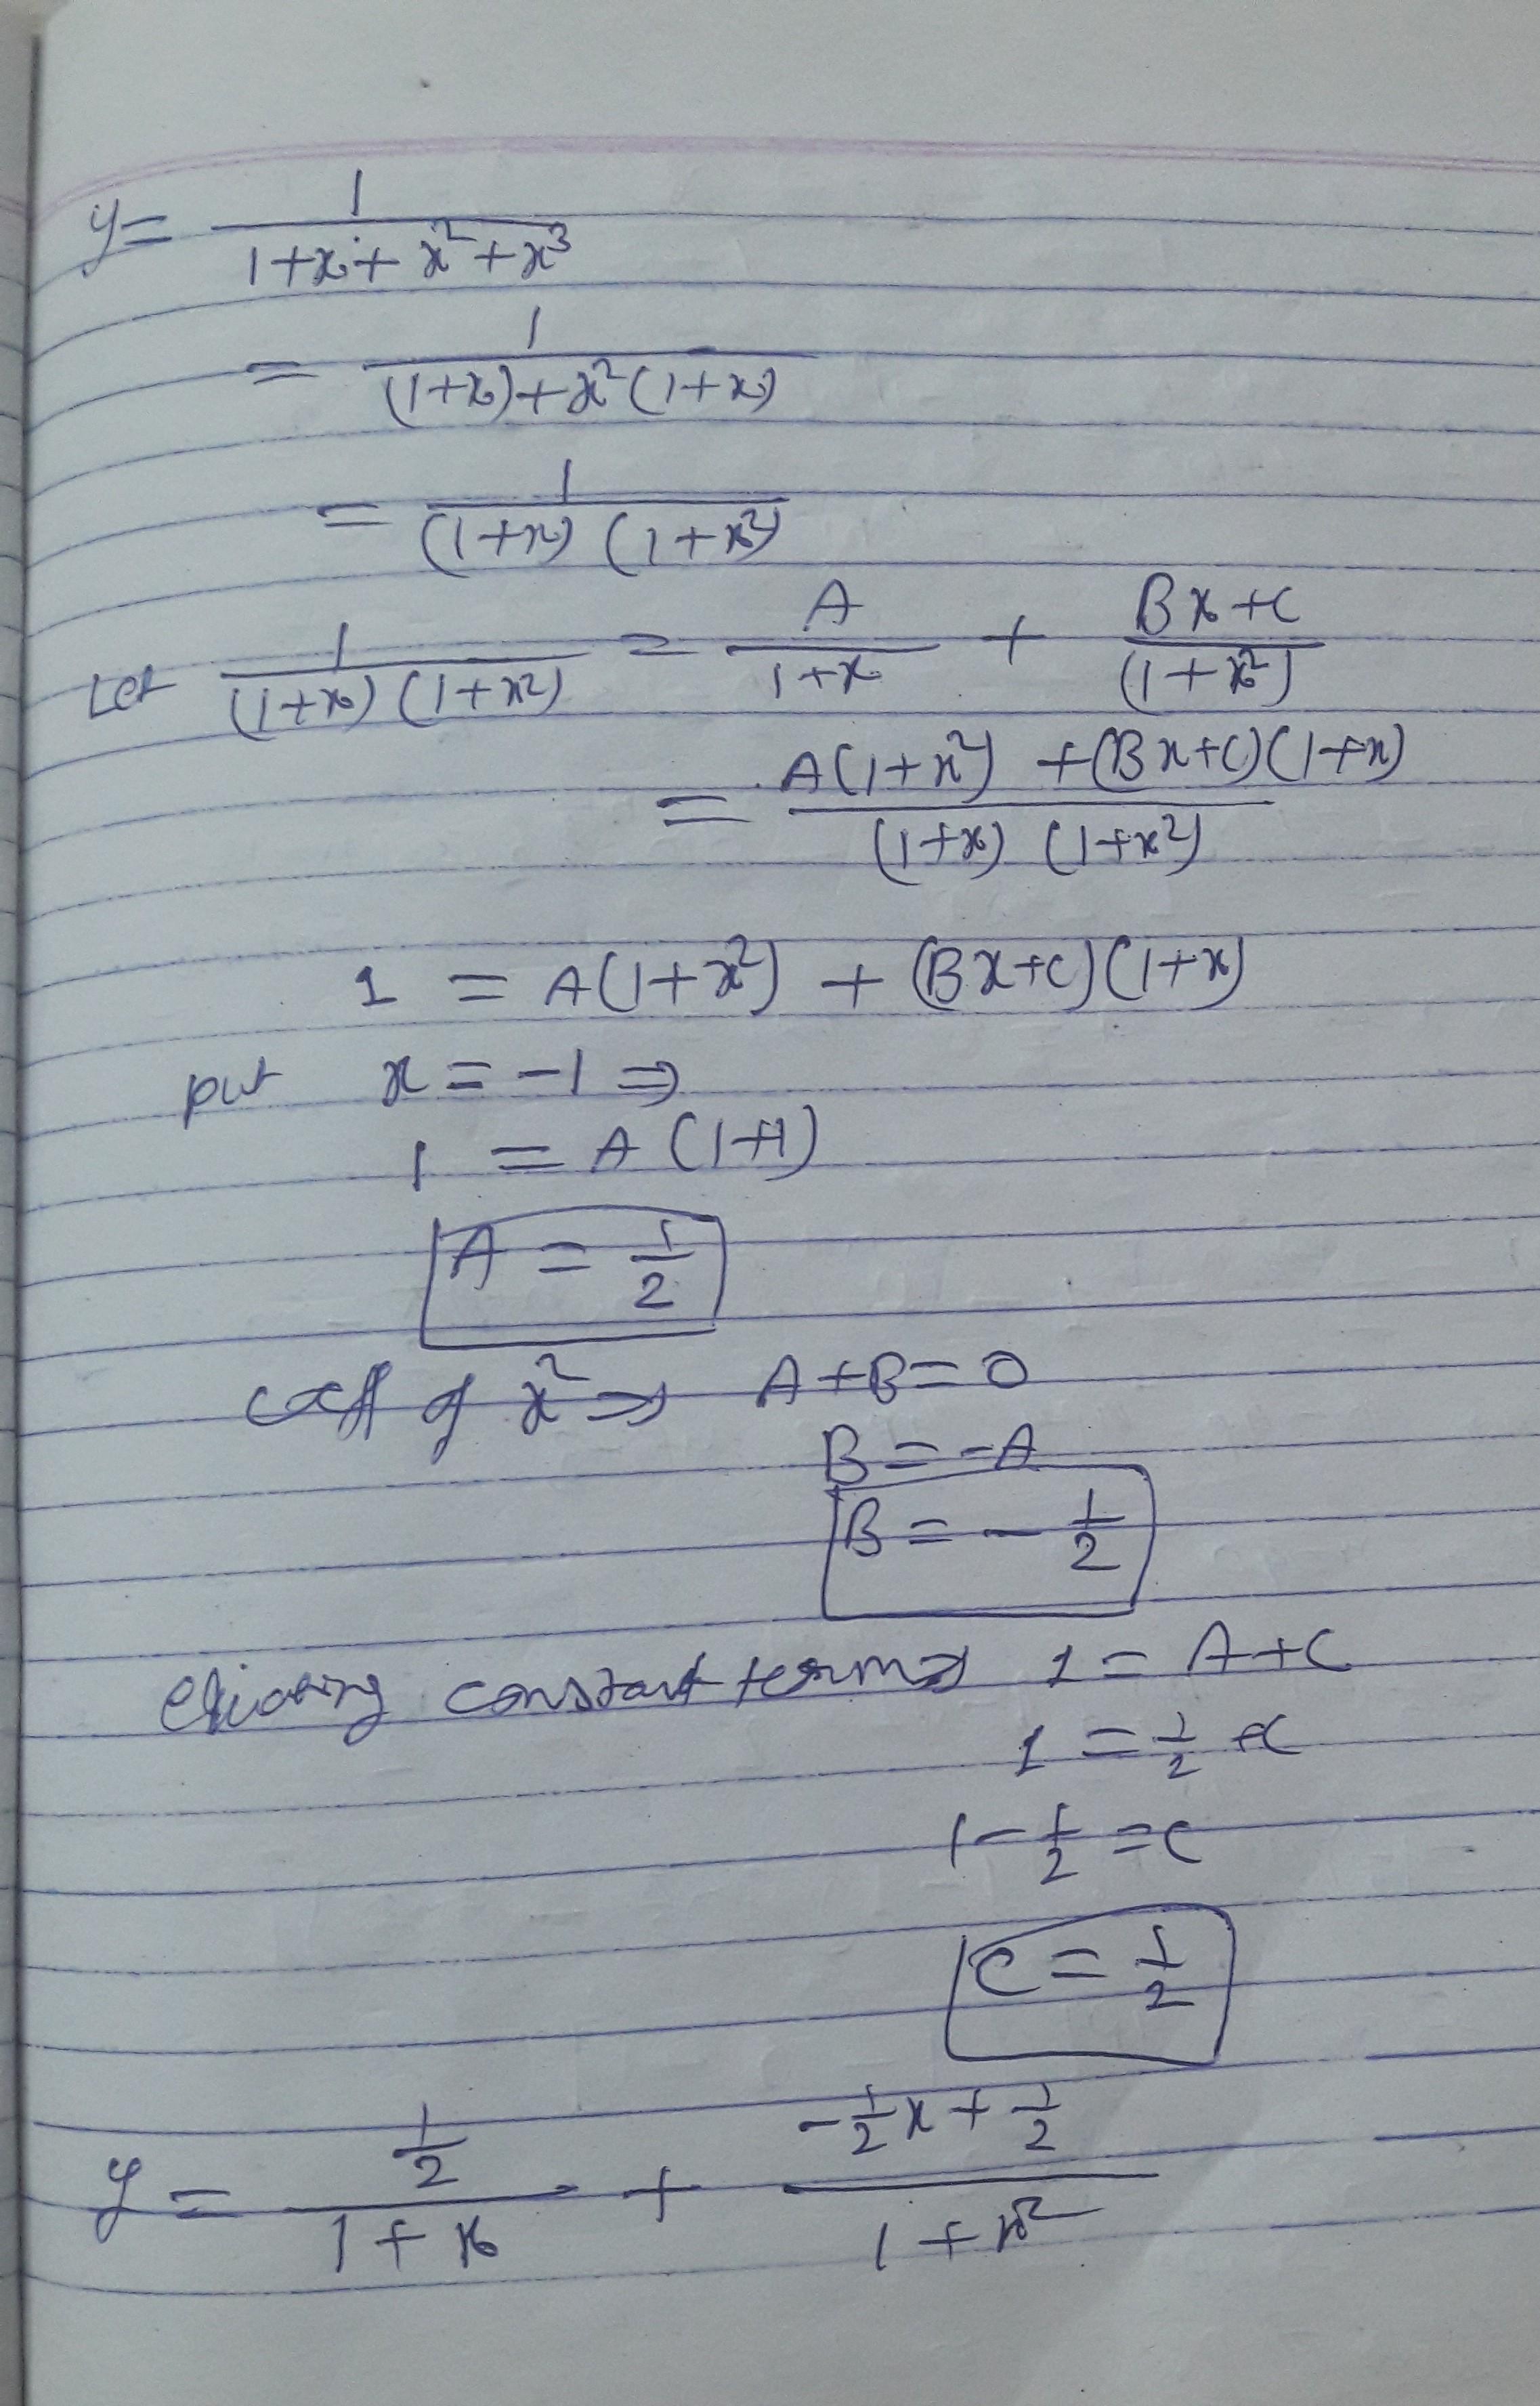 y = 1/(1+x+x²+x³)
= 1/((1+x)+x²(1+x))
= 1/((1+x)(1+x²))
Let 1/((1+x)(1+x²)) = A/(1+x) + (Bx+C)/(1+x²)
= (A(1+x²)+(Bx+C)(1+x))/((1+x)(1+x²))
1 = A(1+x²) + (Bx+C)(1+x)
put x = -1 ⇒
1 = A(1+1)
A = 1/2
coeff of x² ⇒ A+B=0
B = -A
B = -1/2
constant terms ⇒ 1 = A+C
1 = 1/2 + C
1 - 1/2 = C
C = 1/2
y = (1/2)/(1+x) + (-1/2 x + 1/2)/(1+x²)